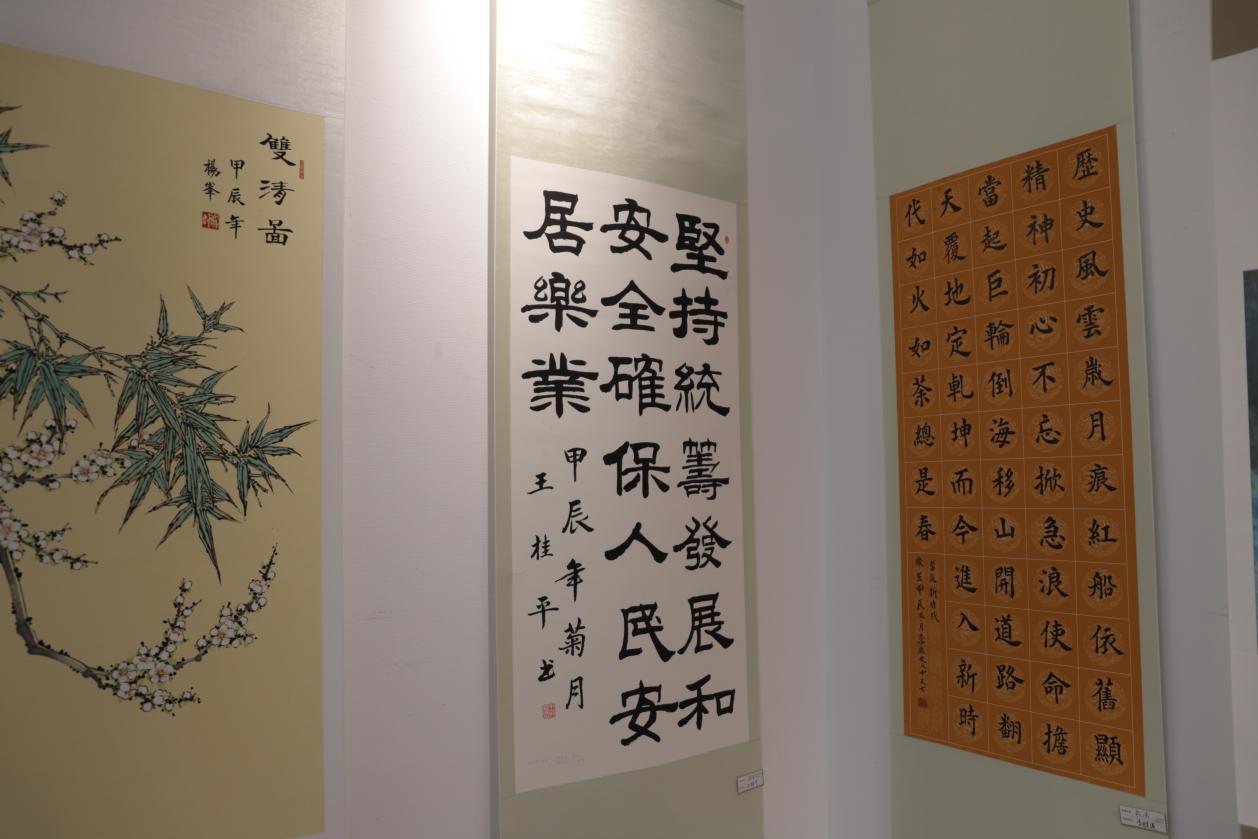 雙清啚
甲辰年
楊峯
堅持統籌發展和
安全確保人民安
居樂業
甲辰年菊月
王桂平书
歷史風雲嵗月痕紅船依舊顯
精神初心不忘掀急浪使命擔
當起巨輪倒海移山開道路翻
天覆地定乹坤而今進入新時
代如火如荼總是春